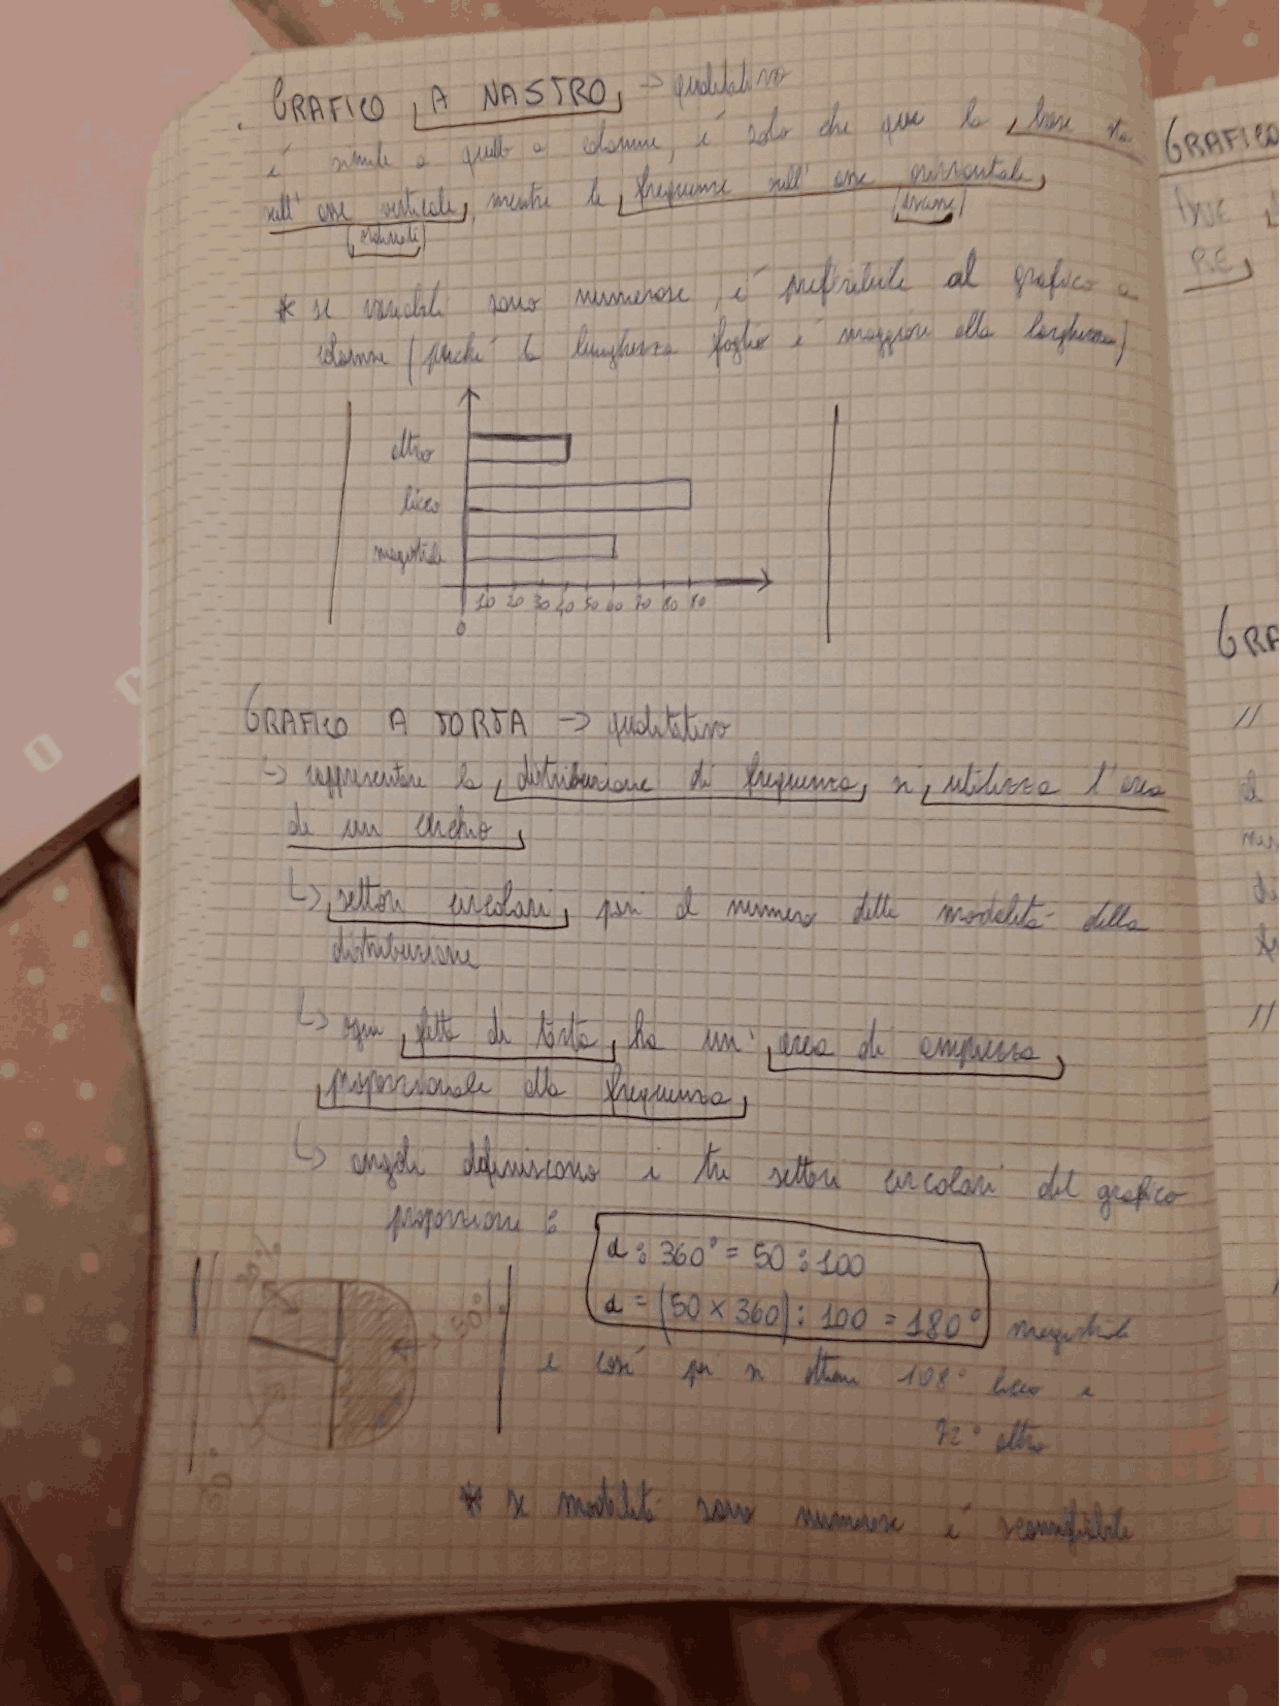 GRAFICO A NASTRO -> qualitativo
è simile a quello a colonne, è solo che qui la base sta
sull'asse verticale, mentre le frequenze sull'asse orizzontale
(ordinate) (ascisse)
* se variabili sono numerose, è preferibile al grafico a
colonne (perché la lunghezza foglio è maggiore alla larghezza)
altro
liceo
magistrale
10 20 30 40 50 60 70 80 90
0
GRAFICO A TORTA -> qualitativo
-> rappresentare la distribuzione di frequenza, si utilizza l'area
di un cerchio
↳ settori circolari, pari al numero delle modalità della
distribuzione
↳ ogni fetta di torta ha un' area di ampiezza
proporzionale alla frequenza
↳ angoli definiscono i tre settori circolari del grafico
proporzione :
α : 360° = 50 : 100
α = (50 x 360) : 100 = 180° magistrale
e così per si ottiene 108° liceo e
72° altro
50%
* se modalità sono numerose è sconsigliabile
GRAFICO
DUE
RE
GRA
//
//